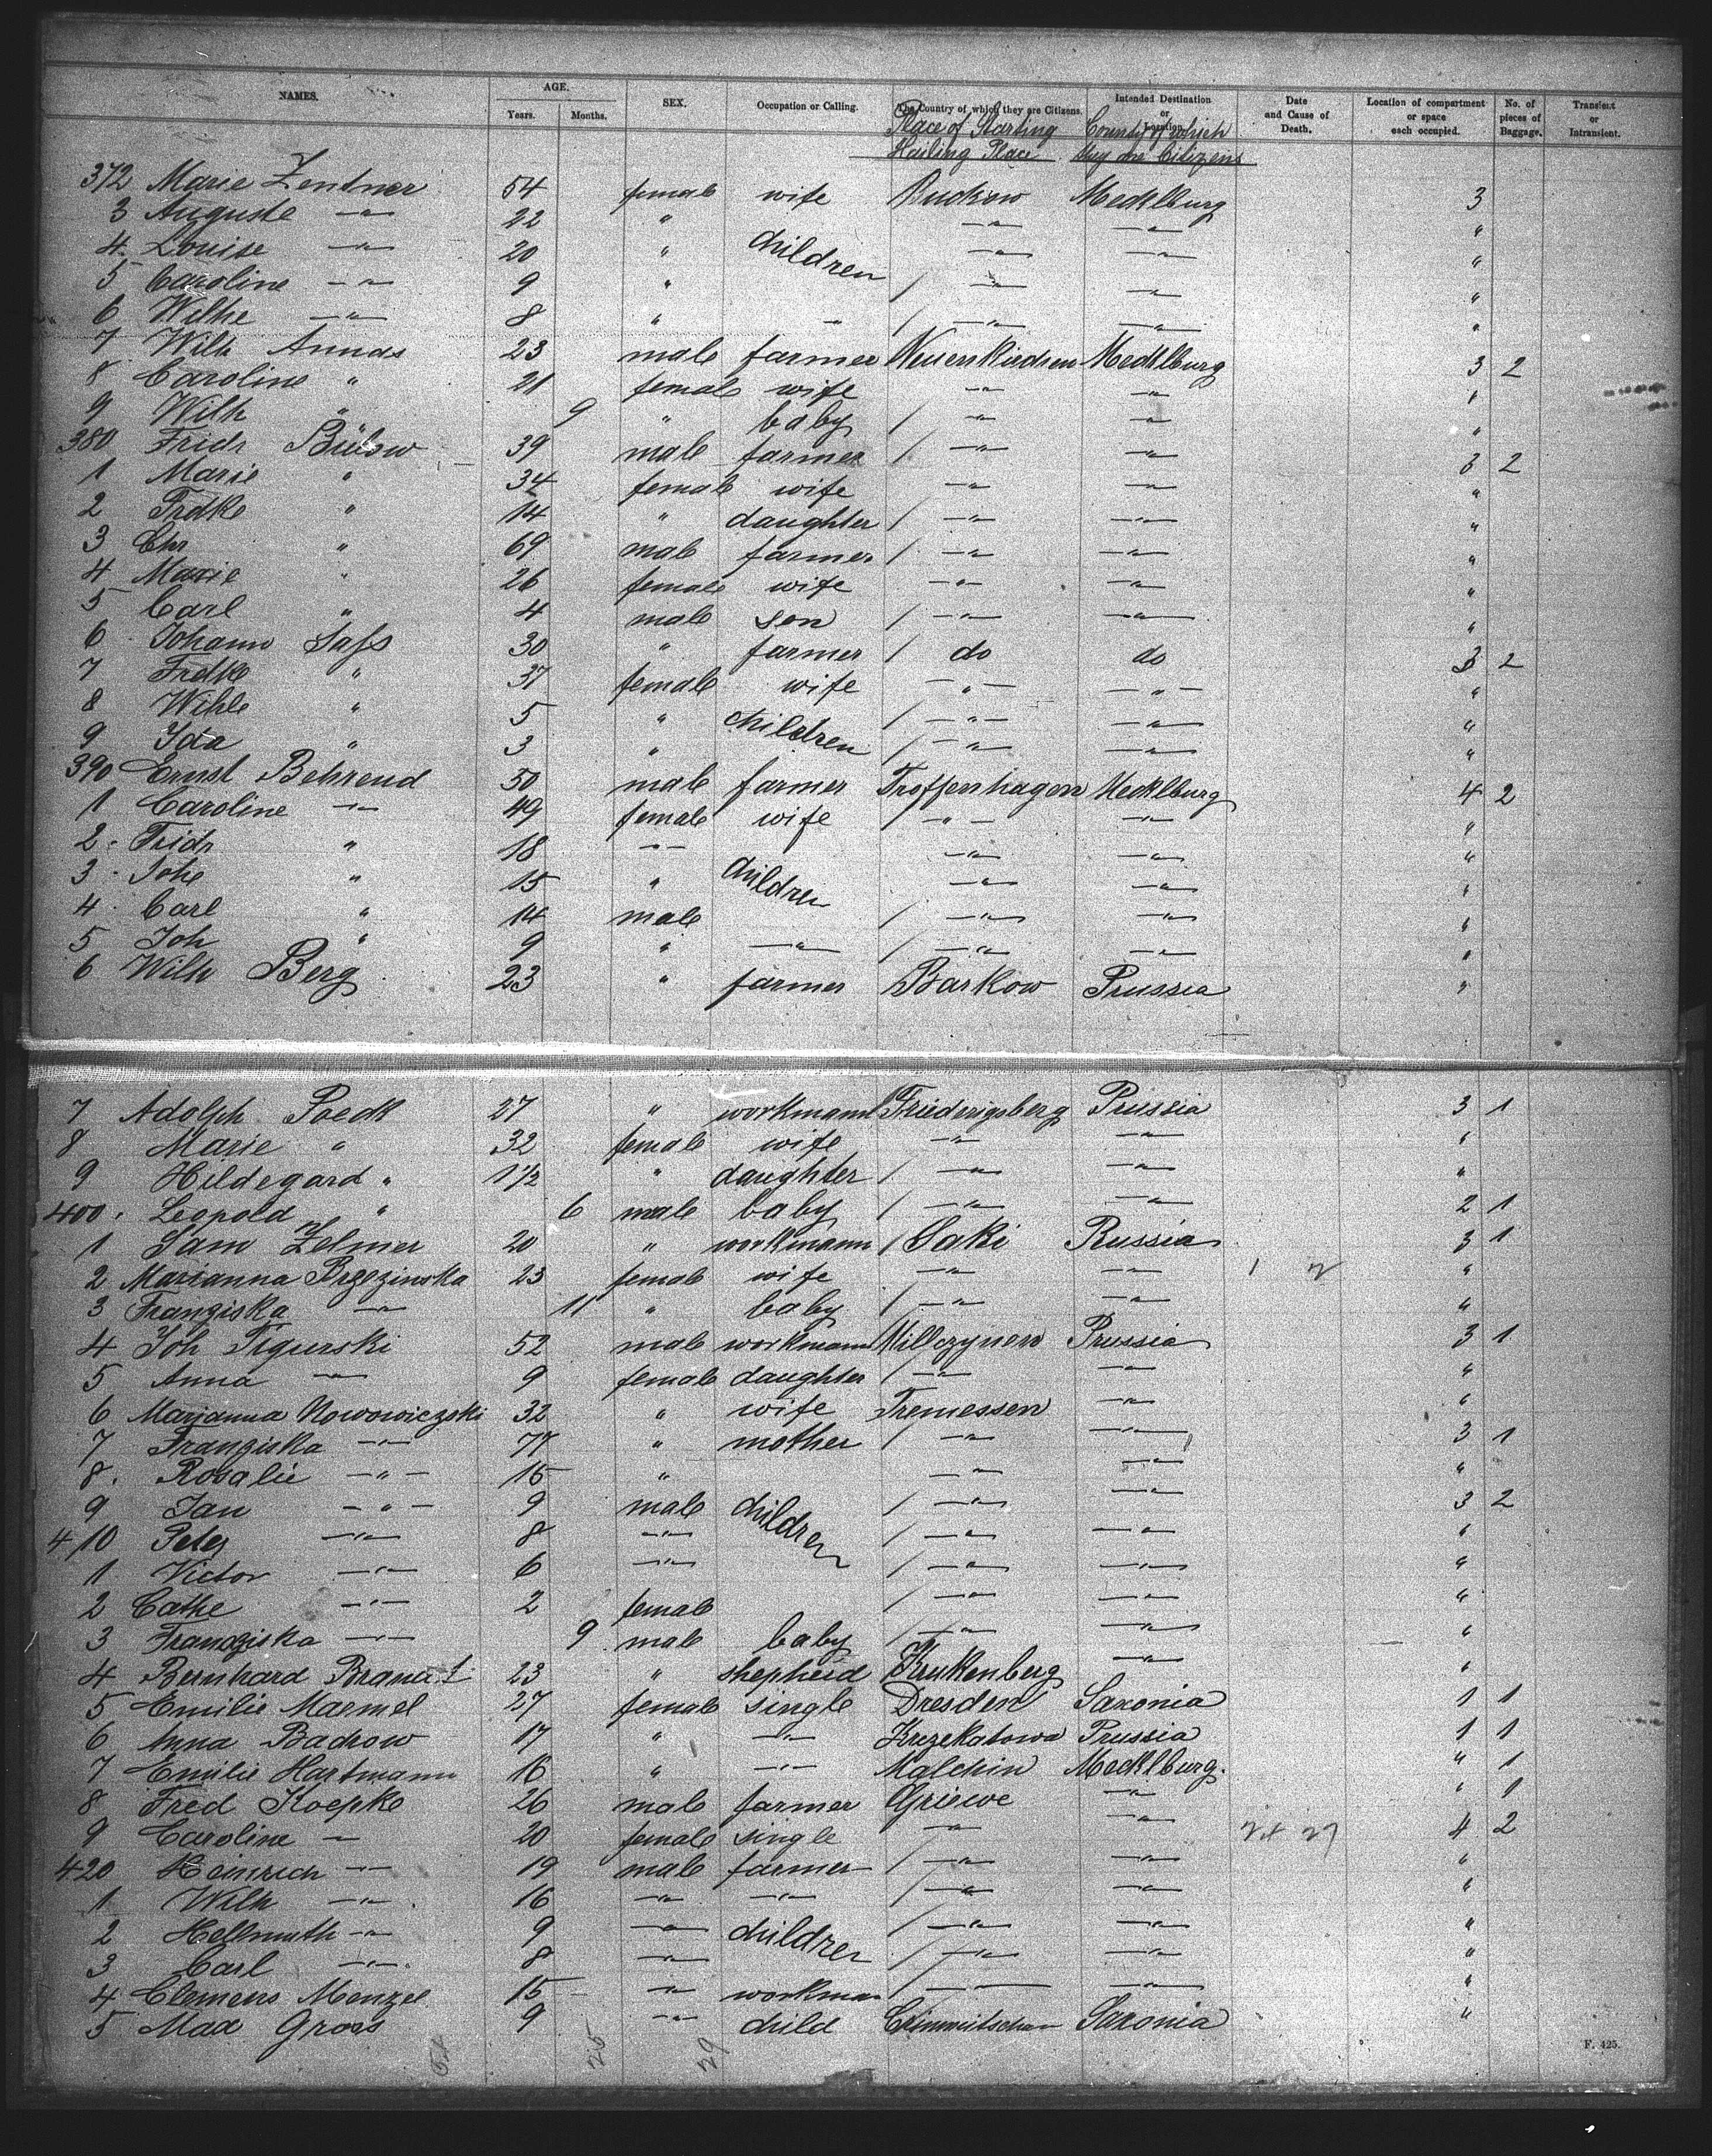 NAMES. AGE. Years. Months. SEX. Occupation or Calling. The Country of which they are Citizens. Intended Destination or Location. Date and Cause of Death. Location of compartment or space each occupied. No. of pieces of Baggage. Transient or Intransient.
Place of Starting Country of which
Hailing Place they are Citizens
372 Marie Zentner 54 female wife Buckow Mecklburg 3
3 Auguste —"— 22 " —"— —"— "
4. Louise —"— 20 " children —"— —"— "
5 Caroline —"— 9 " / —"— —"— "
6 Wilhe —"— 8 " " / —"— —"— "
7 Wilh Annas 23 male farmer Neuenkirchen Mecklburg 3 2
8 Caroline " 21 female wife —"— —"— "
9 Wilh " 9 " baby / —"— —"— "
380 Fridr Bülow 39 male farmer / —"— —"— 3 2
1 Marie " 34 female wife —"— —"— "
2 Frdke " 14 " daughter / —"— —"— "
3 Chr " 69 male farmer / —"— —"— "
4 Marie " 26 female wife —"— —"— "
5 Carl " 4 male son / —"— —"— "
6 Johann Safs 30 " farmer / do do 3 2
7 Frdke " 37 female wife —"— —"— "
8 Wihle " 5 " children / —"— —"— "
9 Ida " 3 " / —"— —"— "
390 Ernst Behrend 50 male farmer Troffenhagen Mecklburg 4 2
1 Caroline —"— 49 female wife —"— —"— "
2. Fridr " 18 —"— —"— —"— "
3. Johe " 15 " children —"— —"— "
4. Carl " 14 male / —"— —"— "
5 Joh " 9 " —"— / —"— —"— "
6 Wilh Berg 23 " farmer Barkow Prussia "
7 Adolph Poedk 27 " workmann Friedrigsberg Prussia 3 1
8 Marie " 32 female wife —"— —"— "
9 Hildegard " 1 1/2 " daughter / —"— —"— "
400. Leopold " 6 male baby / —"— —"— 2 1
1 Sam Zelmer 20 " workmann / Saki Russia 3 1
2 Marianna Brzezinska 23 female wife —"— —"— "
3 Franziska —"— 11 " baby / —"— —"— "
4 Joh Figurski 52 male workmann Willczynen Prussia 3 1
5 Anna —"— 9 female daughter / —"— —"— "
6 Marianna Nowowiczski 32 " wife Tremessen —"— "
7 Franziska —"— 77 " mother / —"— —"— 3 1
8. Rosalie —"— 15 " —"— —"— "
9 Jan —"— 9 male children / —"— —"— 3 2
410 Peter —"— 8 —"— / —"— —"— "
1 Victor —"— 6 —"— / —"— —"— "
2 Cathe —"— 2 female / —"— —"— "
3 Franziska —"— 9 male baby / —"— —"— "
4 Bernhard Brandt 23 " shepherd Krukenberg —"— "
5 Emilie Maemel 27 female single Dresden Saxonia 1 1
6 Anna Badrow 17 " —"— Krzekatowa Prussia 1 1
7 Emilie Hartmann 16 " —"— Malchin Mecklburg. " 1
8 Fred Koepke 26 male farmer Griewe —"— " 1
9 Caroline — 20 female single —"— —"— 4 2
420 Heinrich —"— 19 male farmer / —"— —"— "
1 Wilh —"— 16 —"— —"— / —"— —"— "
2 Hellmuth —"— 9 —"— children / —"— —"— "
3 Carl —"— 8 —"— / —"— —"— "
4 Clemens Menzel 15 —"— workman / —"— —"— "
5 Max Gross 9 —"— child Crimmitschau Saxonia "
25 29
F. 425.